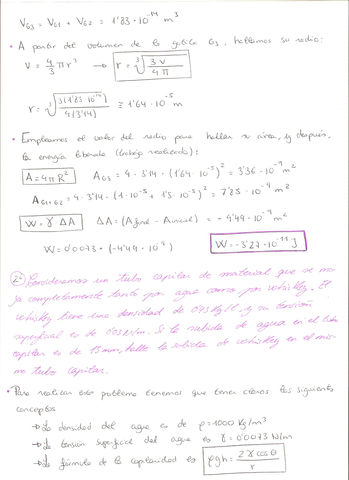 V_G3 = V_G1 + V_G2 = 1'83·10^-14 m^3
• A partir del volumen de la gotita G3, hallamos su radio:
V = 4/3 π r^3 → r = ∛(3V/4π)
r = ∛(3(1'83·10^-14)/4(3'14)) ≅ 1'64·10^-5 m
• Empleamos el valor del radio para hallar su área, y después,
la energía liberada (trabajo realizado):
A = 4πR^2 A_G3 = 4·3'14·(1'64·10^-5)^2 = 3'36·10^-9 m^2
A_G1+G2 = 4·3'14·(1·10^-5 + 1'5·10^-5)^2 = 7'85·10^-9 m^2
W = γ ΔA ΔA = (A final - A inicial) = -4'49·10^-9 m^2
W = 0'0073·(-4'49·10^-9) W = -3'27·10^-11 J
2º Consideramos un tubo capilar de material que se mo
ja completamente tanto por agua como por whiskey. El
whiskey tiene una densidad de 0'93 Kg/l, y su tensión
superficial es de 0'03 N/m. Si la subida de agua en el tubo
capilar es de 15 mm, halle la subida de whiskey en el mis
mo tubo capilar.
• Para realizar este problema tenemos que tener claros los siguientes
conceptos
→ La densidad del agua es de ρ = 1000 Kg/m^3
→ La tensión superficial del agua es γ = 0'0073 N/m
→ La fórmula de la capilaridad es ρgh = 2γ cos θ / r